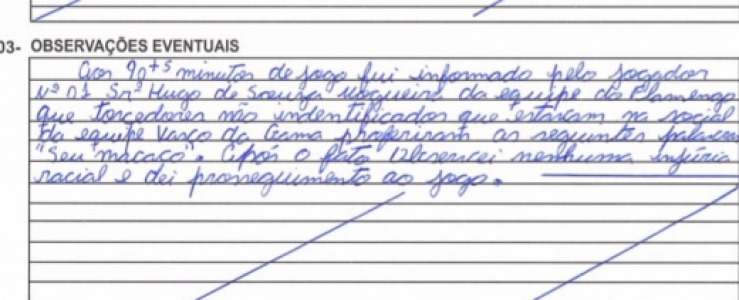 03- OBSERVAÇÕES EVENTUAIS
Aos 90+5 minutos de jogo fui informado pelo jogador
Nº 01 Srº Hugo de Souza Nogueira da equipe do Flamengo
que torcedores não indentificados que estavam na social
da equipe Vasco da Gama proferiram as seguintes palavras
"Seu macaco". Após o fato presenciei nenhuma injúria
racial e dei prosseguimento ao jogo.